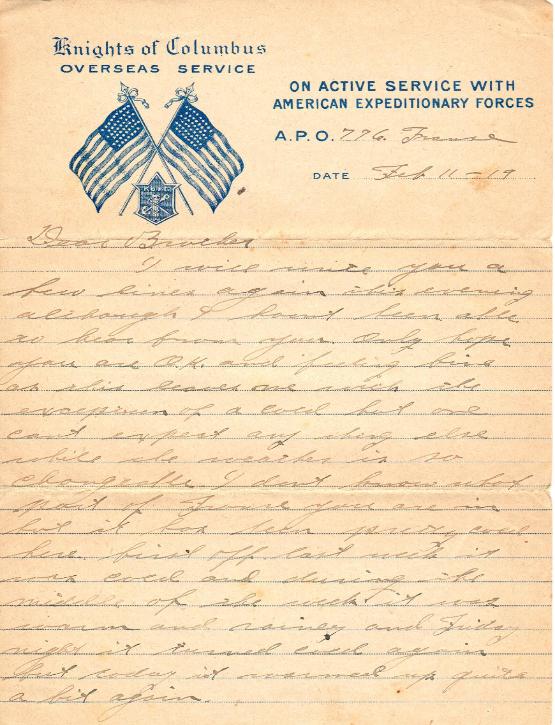 Knights of Columbus
OVERSEAS SERVICE
ON ACTIVE SERVICE WITH
AMERICAN EXPEDITIONARY FORCES
A.P.O. 776. France
DATE Feb 11 - 19
Dear Brother
I will write you a
few lines again this evening
although I haven't been able
to hear from you. Only hope
you are O.K. and feeling fine
as this leaves me with the
exception of a cold but one
cant expect any thing else
while the weather is so
changeable. I don't know what
part of France you are in
but it has been pretty cold
here. first off last week it
was cold and during the
middle of the week it was
warm and rainey and Friday
night it turned cold again
but today it warmed up quite
a bit again.